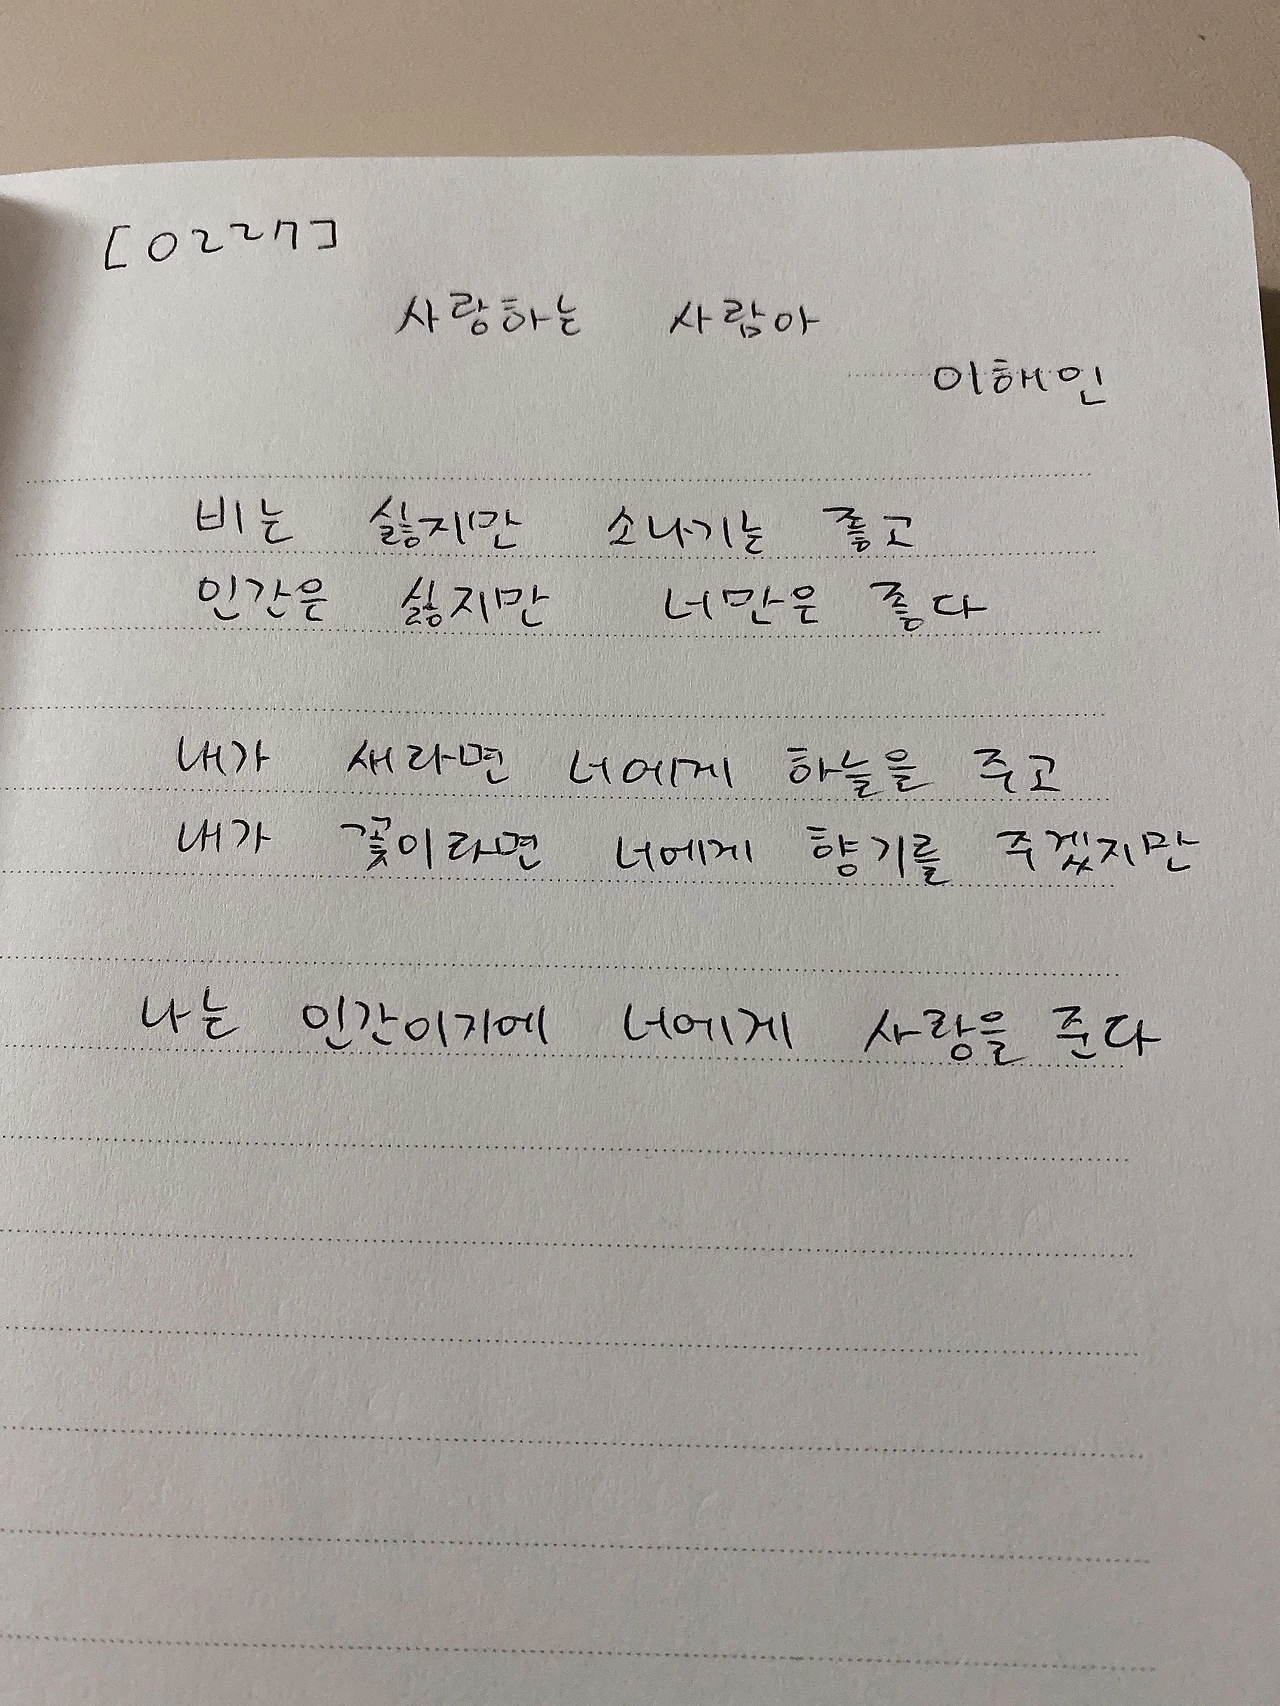 [0227]
사랑하는 사람아
이해인
비는 싫지만 소나기는 좋고
인간은 싫지만 너만은 좋다
내가 새라면 너에게 하늘을 주고
내가 꽃이라면 너에게 향기를 주겠지만
나는 인간이기에 너에게 사랑을 준다